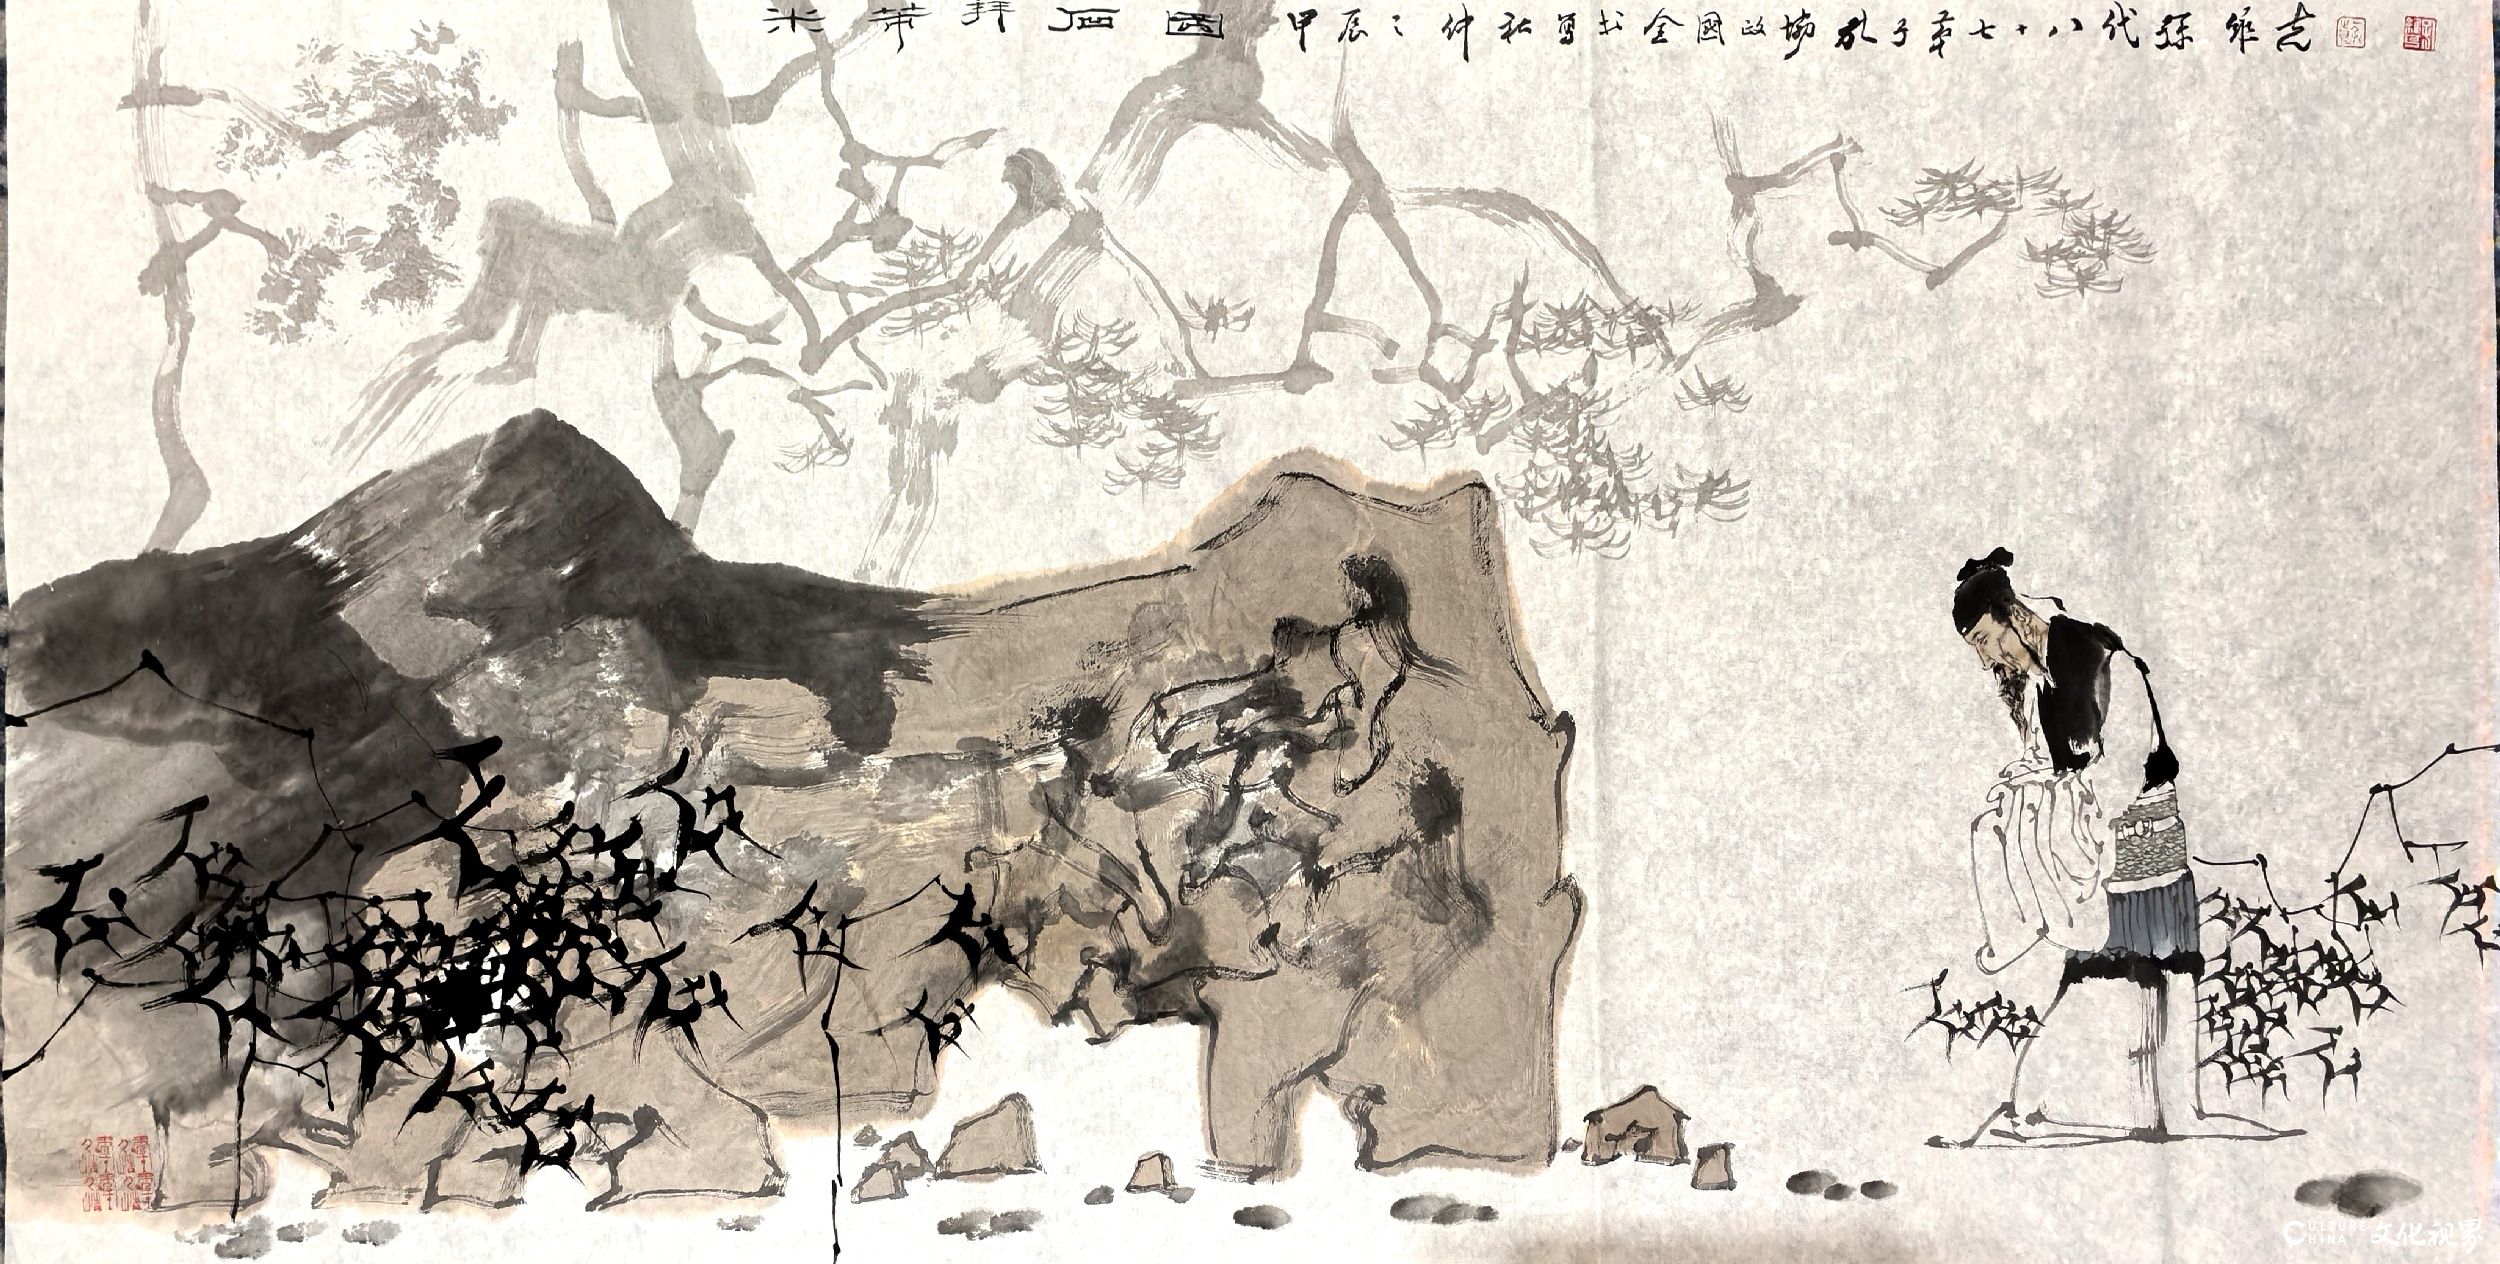 米芾拜石圖 甲辰之仲秋写於全國政协孔子第七十八代孫維克
CULTURE CHINA 文化视界